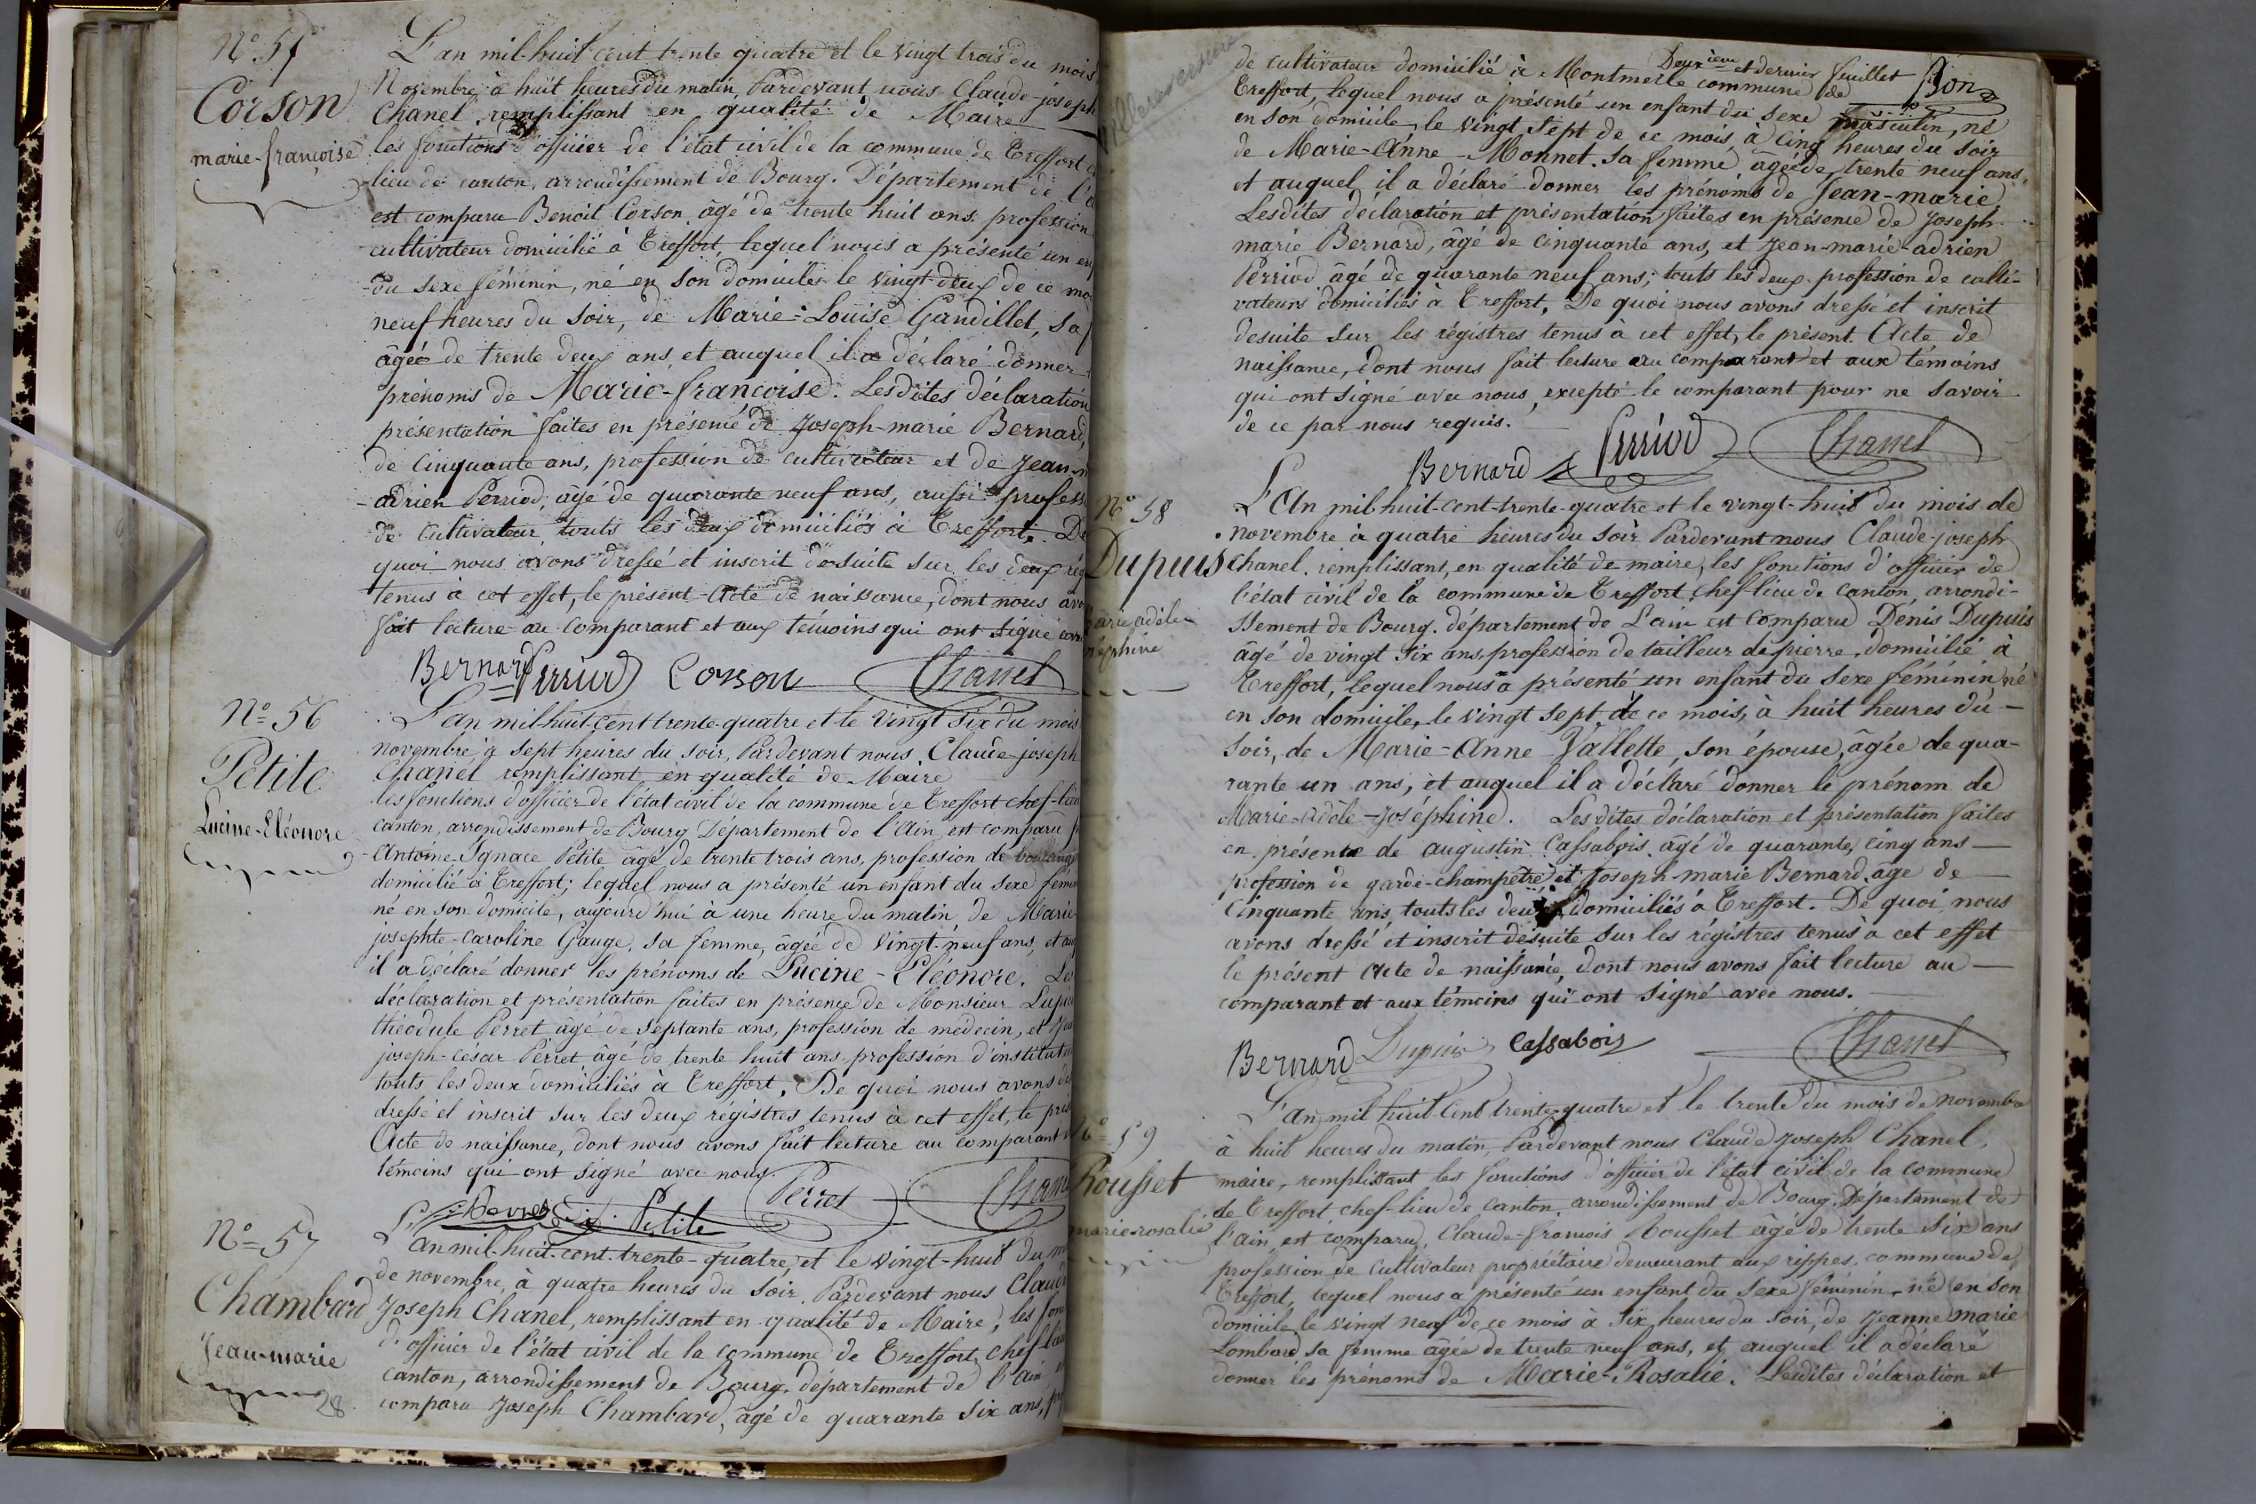 N° 55
Corson
marie-françoise
L'an mil-huit cent trente quatre et le vingt trois du mois
Novembre, à huit heures du matin, Pardevant nous Claude-joseph
Chanel, remplissant en qualité de Maire
les fonctions d'officier de l'état civil de la commune de Treffort
lieu de canton, arrondissement de Bourg. Département de l'
est comparu Benoit Corson âgé de trente huit ans profession
cultivateur domicilié à Treffort, lequel nous a présenté un en
du sexe féminin, né en son domicile le vingt-deux de ce mo
neuf heures du soir, de Marie-Louise Gandillet, sa
âgée de trente deux ans, et auquel il a déclaré donner
prénoms de Marie-françoise. Lesdites déclaration
présentation faites en présence de Joseph-marie Bernard,
de cinquante ans, profession de cultivateur et de Jean-
-adrien Perriod, âgé de quarante neuf ans, aussi profess
de cultivateur, touts les deux domiciliés à Treffort. De
quoi nous avons dressé et inscrit desuite sur les deux rég
tenus à cet effet, le présent Acte de naissance, dont nous avo
fait lecture au comparant et aux témoins qui ont signé
Bernard Perriod Corson Chanel
N° 56
Petite
Lucine-Eléonore
L'an mil-huit-cent trente-quatre et le vingt six du mois
novembre, à sept heures du soir, Pardevant nous Claude-joseph
Chanel remplissant, en qualité de Maire
les fonctions d'officier de l'état civil de la commune de Treffort chef-lieu
canton, arrondissement de Bourg Département de l'Ain, est comparu
Antoine-Ignace Petite âgé de trente trois ans, profession de boulang
domicilié à Treffort; lequel nous a présenté un enfant du sexe fémi
né en son domicile, aujourd'hui à une heure du matin de Marie-
josephte-Caroline Gauge, sa femme, âgée de vingt-neuf ans, et auq
il a déclaré donner les prénoms de Lucine-Eléonore. Les
déclaration et présentation faites en présence de Monsieur
théodule Perret âgé de septante ans, profession de médecin, et
joseph-césar Perret âgé de trente huit ans profession d'institut
touts les deux domiciliés à Treffort. De quoi nous avons de
dressé et inscrit sur les deux régistres tenus à cet effet, le prés
Acte de naissance, dont nous avons fait lecture au comparant
témoins qui ont signé avec nous.
Petite Perret Chanel
N° 57
Chambard
Jean-marie
28
L'an mil-huit-cent-trente-quatre, et le vingt-huit du m
de novembre, à quatre heures du soir, Pardevant nous Claude
Joseph Chanel, remplissant en qualité de Maire, les fonc
d'officier de l'état civil de la commune de Treffort, chef-lieu
canton, arrondissement de Bourg, département de l'ain
comparu Joseph Chambard, âgé de quarante six ans, pr
Deuxième et dernier feuillet Bon
de cultivateur domicilié à Montmerle commune de
Treffort, lequel nous a présenté un enfant du sexe masculin, né
en son domicile, le vingt sept de ce mois, à cinq heures du soir
de Marie-Anne Monnet, sa femme âgée de trente neuf ans,
et auquel il a déclaré donner les prénoms de Jean-marie
Lesdites déclaration et présentation faites en présence de Joseph-
marie Bernard, âgé de cinquante ans, et Jean-marie-adrien
Perriod âgé de quarante neuf ans; touts les deux profession de culti-
vateurs domiciliés à Treffort. De quoi nous avons dressé et inscrit
desuite sur les régistres tenus à cet effet, le présent Acte de
naissance, dont nous fait lecture au comparant et aux témoins
qui ont signé avec nous, excepté le comparant pour ne savoir
de ce par nous requis.
Bernard Perriod Chanel
N° 58
Dupuis
marie adèle
joséphine
L'An mil huit-cent-trente-quatre et le vingt-huit du mois de
novembre à quatre heures du soir Pardevant nous Claude-joseph
Chanel, remplissant, en qualité de maire, les fonctions d'officier de
l'état civil de la commune de Treffort chef-lieu de canton, arrondi-
ssement de Bourg. département de l'ain est comparu Denis Dupuis
âgé de vingt six ans, profession de tailleur de pierre, domicilié à
Treffort, lequel nous a présenté un enfant du sexe féminin né
en son domicile, le vingt sept de ce mois, à huit heures du
soir, de Marie-Anne Vallette, son épouse, âgée de qua-
rante un ans, et auquel il a déclaré donner le prénom de
Marie-Adèle-Joséphine. Lesdites déclaration et présentation faites
en présence de augustin Cassabois âgé de quarante, cinq ans
profession de garde-champêtre et Joseph-marie Bernard, âge de
cinquante ans, touts les deux domiciliés à Treffort. De quoi nous
avons dressé et inscrit desuite sur les régistres tenus à cet effet
le présent Acte de naissance, dont nous avons fait lecture au
comparant et aux témoins qui ont signé avec nous.
Bernard Dupuis Cassabois Chanel
N° 59
Rousset
marie-rosalie
L'an mil huit cent trente-quatre et le trente du mois de novembre
à huit heures du matin, Pardevant nous Claude Joseph Chanel,
maire, remplissant les fonctions d'officier de l'état civil de la commune
de Treffort chef-lieu de canton, arrondissement de Bourg, Département de
l'ain, est comparu, Claude-françois Rousset âgé de trente six ans
profession de cultivateur propriétaire demeurant aux rippes, commune de
Treffort, lequel nous a présenté un enfant du sexe féminin, né en son
domicile le vingt neuf de ce mois à six heures du soir, de Jeanne marie
Lombard sa femme âgée de trente neuf ans, et auquel il a déclaré
donner les prénoms de Marie-Rosalie. Lesdites déclaration et